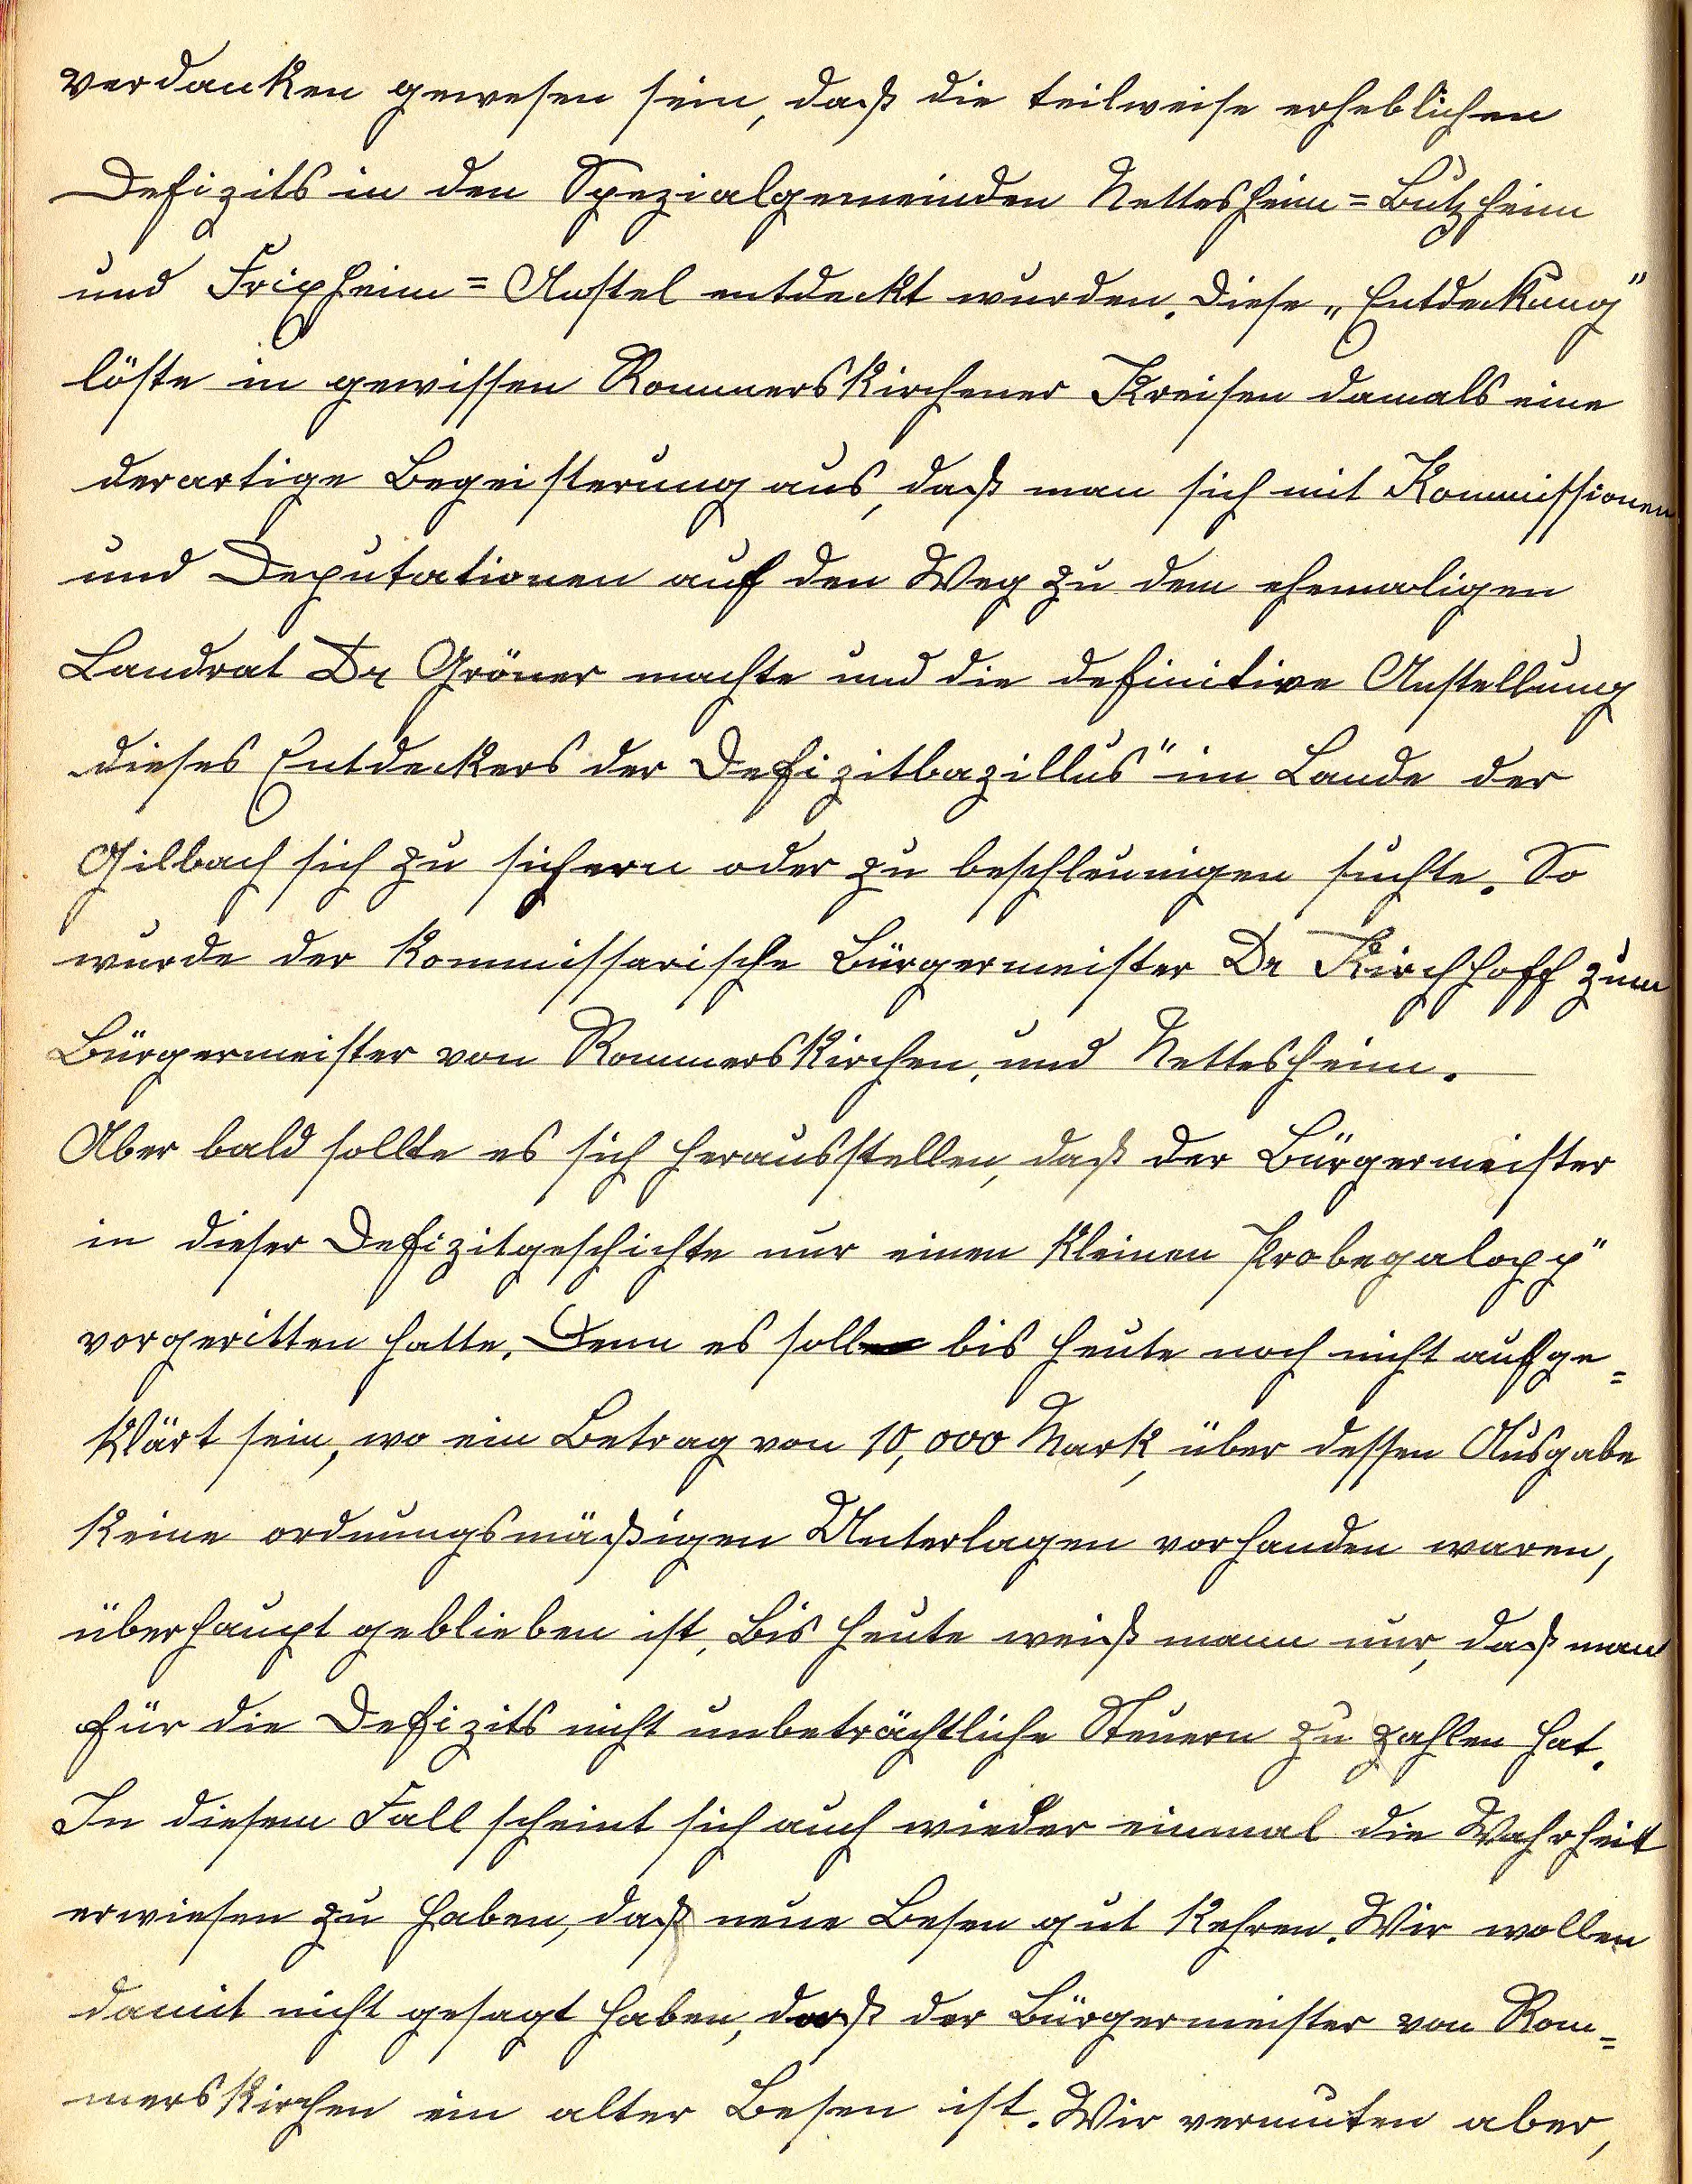 verdanken gewesen sein, daß die teilweise erheblichen
Defizits in den Spezialgemeinden Nettesheim=Butzheim
und Frixheim=Anstel entdeckt wurden. Diese „Entdeckung"
löste in gewissen Rommerskirchener Kreisen damals eine
derartige Begeisterung aus, daß man sich mit Kommissionen
und Deputationen auf den Weg zu dem ehemaligen
Landrat Dr Gröner machte und die definitive Anstellung
dieses Entdeckers der Defizitbazillus" im Lande der
Gilbach sich zu sichern oder zu beschleunigen suchte. So
wurde der kommissarische Bürgermeister Dr Kirchhoff zum
Bürgermeister von Rommerskirchen, und Nettesheim.
Aber bald sollte es sich herausstellen, daß der Bürgermeister
in dieser Defizitgeschichte nur einen kleinen Probegalopp"
vorgeritten hatte. Denn es soll bis heute noch nicht aufge=
klärt sein, wo ein Betrag von 10,000 Mark, über dessen Ausgabe
keine ordnungsmäßigen Unterlagen vorhanden waren,
überhaupt geblieben ist. Bis heute weiß mann nur, daß man
für die Defizits nicht unbeträchtliche Steuern zu zahlen hat.
In diesem Fall scheint sich auch wieder einmal die Wahrheit
erwiesen zu haben, daß neue Besen gut kehren. Wir wollen
damit nicht gesagt haben, daß der Bürgermeister von Rom=
merskirchen ein alter Besen ist. Wir vermuten aber,